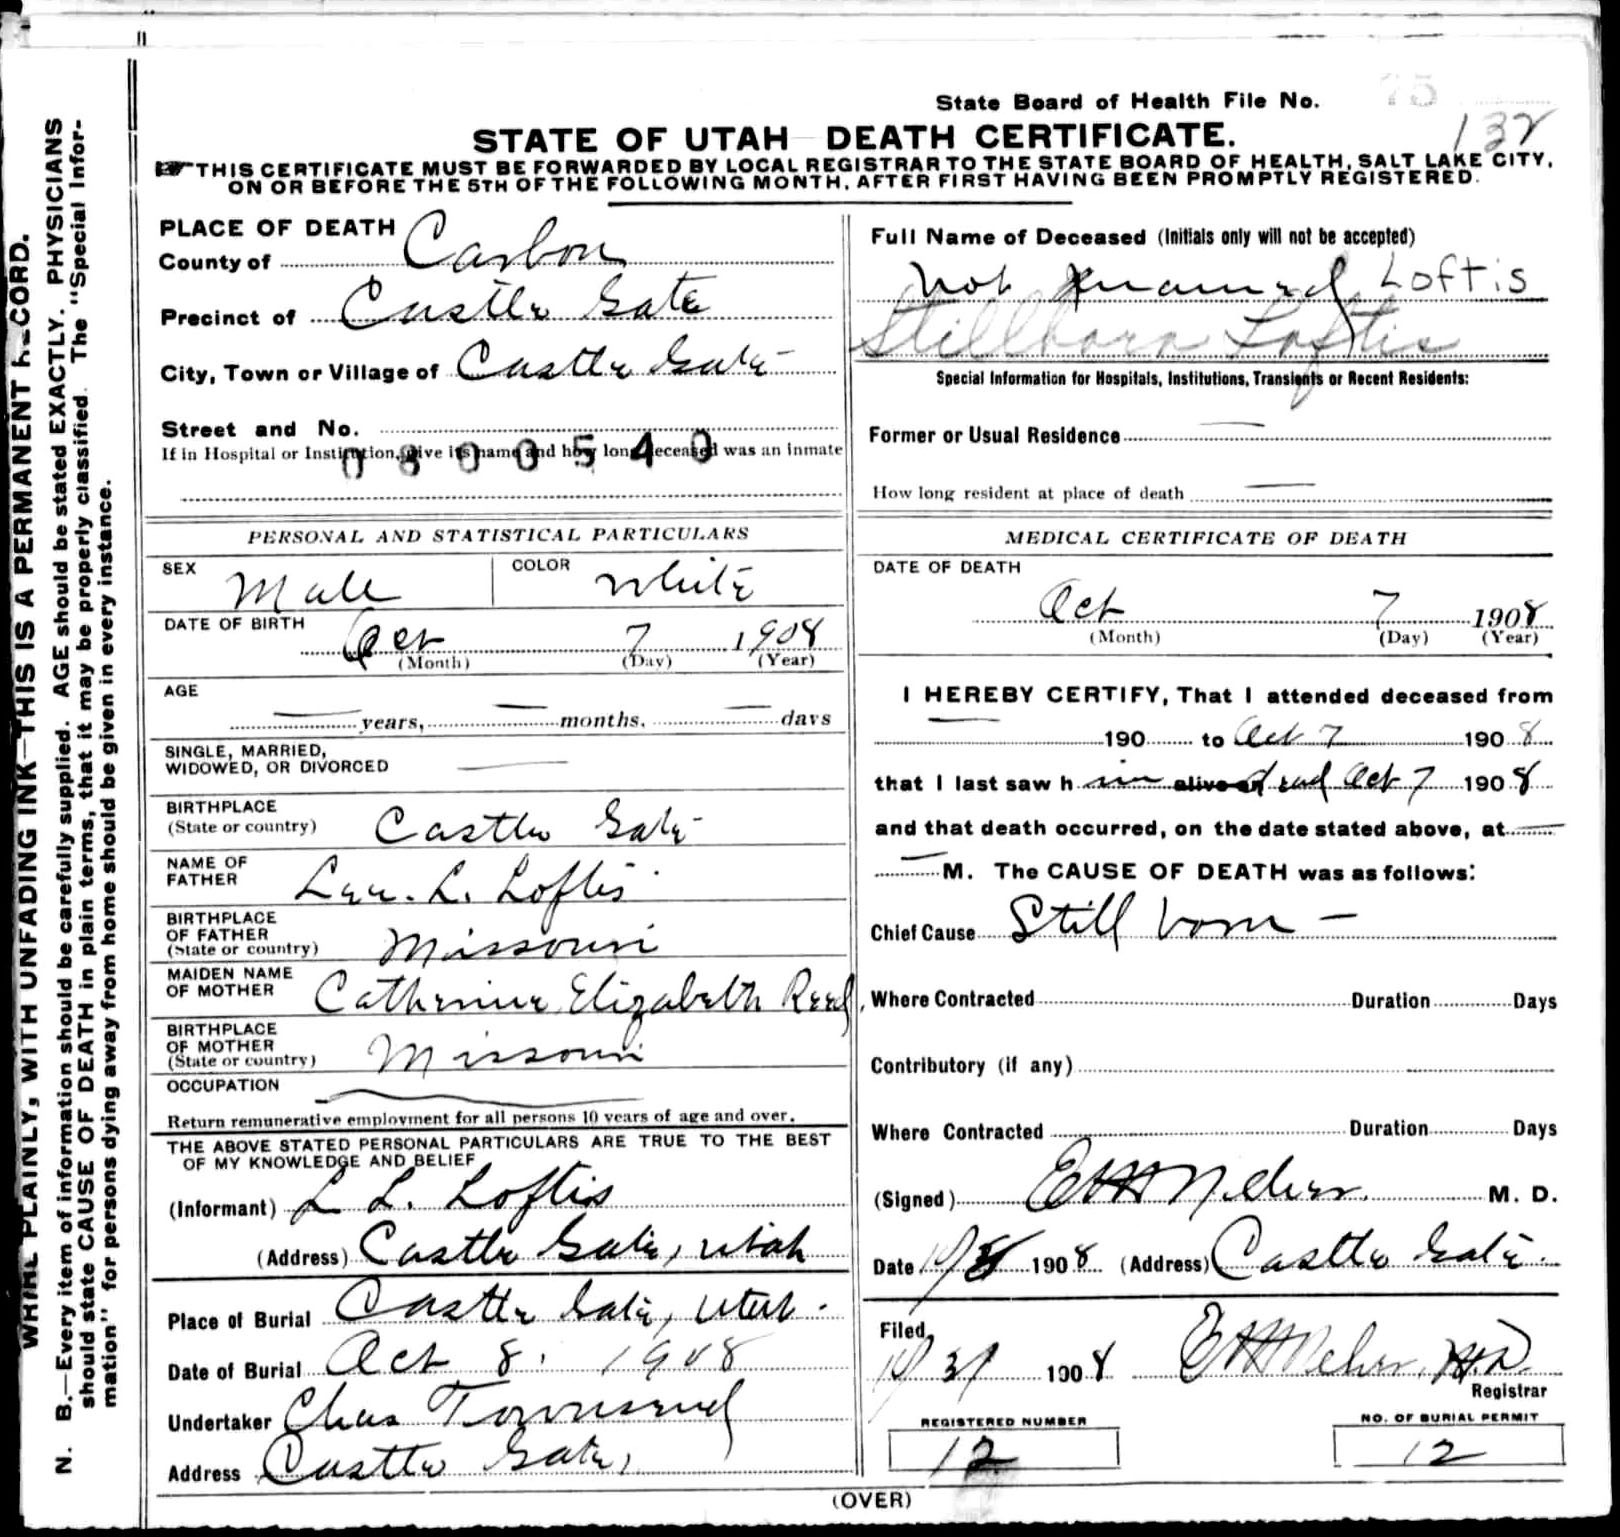 State Board of Health File No. 75
132
STATE OF UTAH DEATH CERTIFICATE.
THIS CERTIFICATE MUST BE FORWARDED BY LOCAL REGISTRAR TO THE STATE BOARD OF HEALTH, SALT LAKE CITY,
ON OR BEFORE THE 5TH OF THE FOLLOWING MONTH, AFTER FIRST HAVING BEEN PROMPTLY REGISTERED.
WRITE PLAINLY, WITH UNFADING INK—THIS IS A PERMANENT RECORD.
N. B.—Every item of information should be carefully supplied. AGE should be stated EXACTLY. PHYSICIANS
should state CAUSE OF DEATH in plain terms, that it may be properly classified. The "Special Infor-
mation" for persons dying away from home should be given in every instance.
PLACE OF DEATH
County of Carbon
Precinct of Castle Gate
City, Town or Village of Castle Gate
Street and No.
If in Hospital or Institution, give its name and how long deceased was an inmate
0300540
PERSONAL AND STATISTICAL PARTICULARS
SEX Male COLOR White
DATE OF BIRTH
Oct 7 1908
(Month) (Day) (Year)
AGE
— years, — months, — days
SINGLE, MARRIED,
WIDOWED, OR DIVORCED —
BIRTHPLACE
(State or country) Castle Gate
NAME OF
FATHER Lee. L. Loftis
BIRTHPLACE
OF FATHER
(State or country) Missouri
MAIDEN NAME
OF MOTHER Catherine Elizabeth Reed
BIRTHPLACE
OF MOTHER
(State or country) Missouri
OCCUPATION
Return remunerative employment for all persons 10 years of age and over.
THE ABOVE STATED PERSONAL PARTICULARS ARE TRUE TO THE BEST
OF MY KNOWLEDGE AND BELIEF
(Informant) L L. Loftis
(Address) Castle Gate, Utah
Place of Burial Castle Gate, Utah.
Date of Burial Oct 8. 1908
Undertaker Chas Townsend
Address Castle Gate,
Full Name of Deceased (Initials only will not be accepted)
not named Loftis
Stillborn Loftis
Special Information for Hospitals, Institutions, Transients or Recent Residents:
Former or Usual Residence —
How long resident at place of death —
MEDICAL CERTIFICATE OF DEATH
DATE OF DEATH
Oct 7 1908
(Month) (Day) (Year)
I HEREBY CERTIFY, That I attended deceased from
— 190 to Oct 7 1908
that I last saw him alive on dead Oct 7 1908
and that death occurred, on the date stated above, at —
— M. The CAUSE OF DEATH was as follows:
Chief Cause Still born —
Where Contracted Duration Days
Contributory (if any)
Where Contracted Duration Days
(Signed) M. D.
Date 1908 (Address) Castle Gate.
Filed,
10/31 1908
Registrar
REGISTERED NUMBER
12
NO. OF BURIAL PERMIT
12
(OVER)